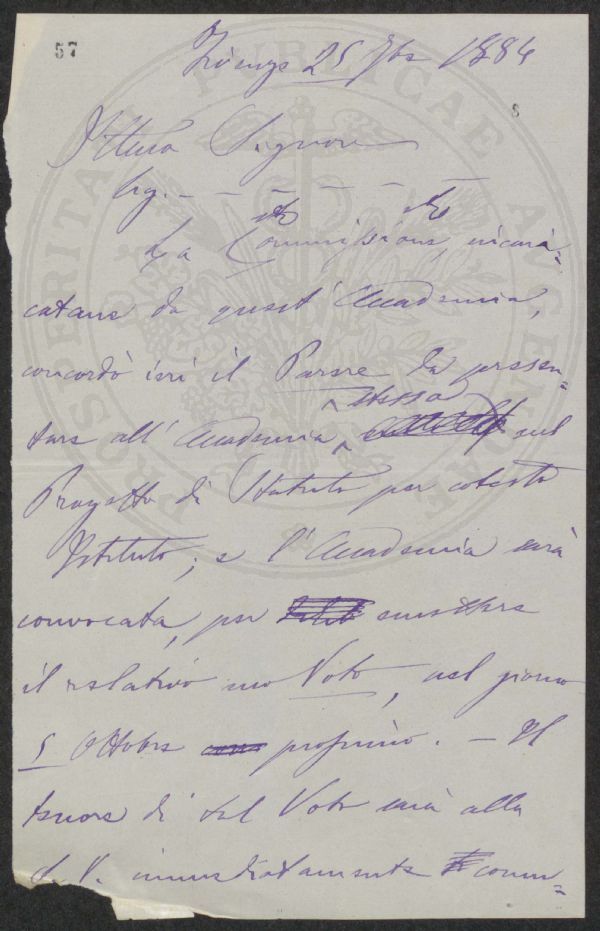 57
Firenze 25 7bre 1884
8
Ill.mo Signore
Sig. – – – – –
La Commissione, incari=
catane da quest'Accademia,
concordò ieri il Parere da presen=
stessa
tare all'Accademia sul
Progetto di Statuto per cotesto
Istituto; e l'Accademia sarà
convocata, per emettere
il relativo suo Voto, nel giorno
5 Ottobre prossimo. – Il
tenore di tal Voto sarà alla
S. V. immediatamente comu=
PROSPERITATI PUBLICAE AUGENDAE